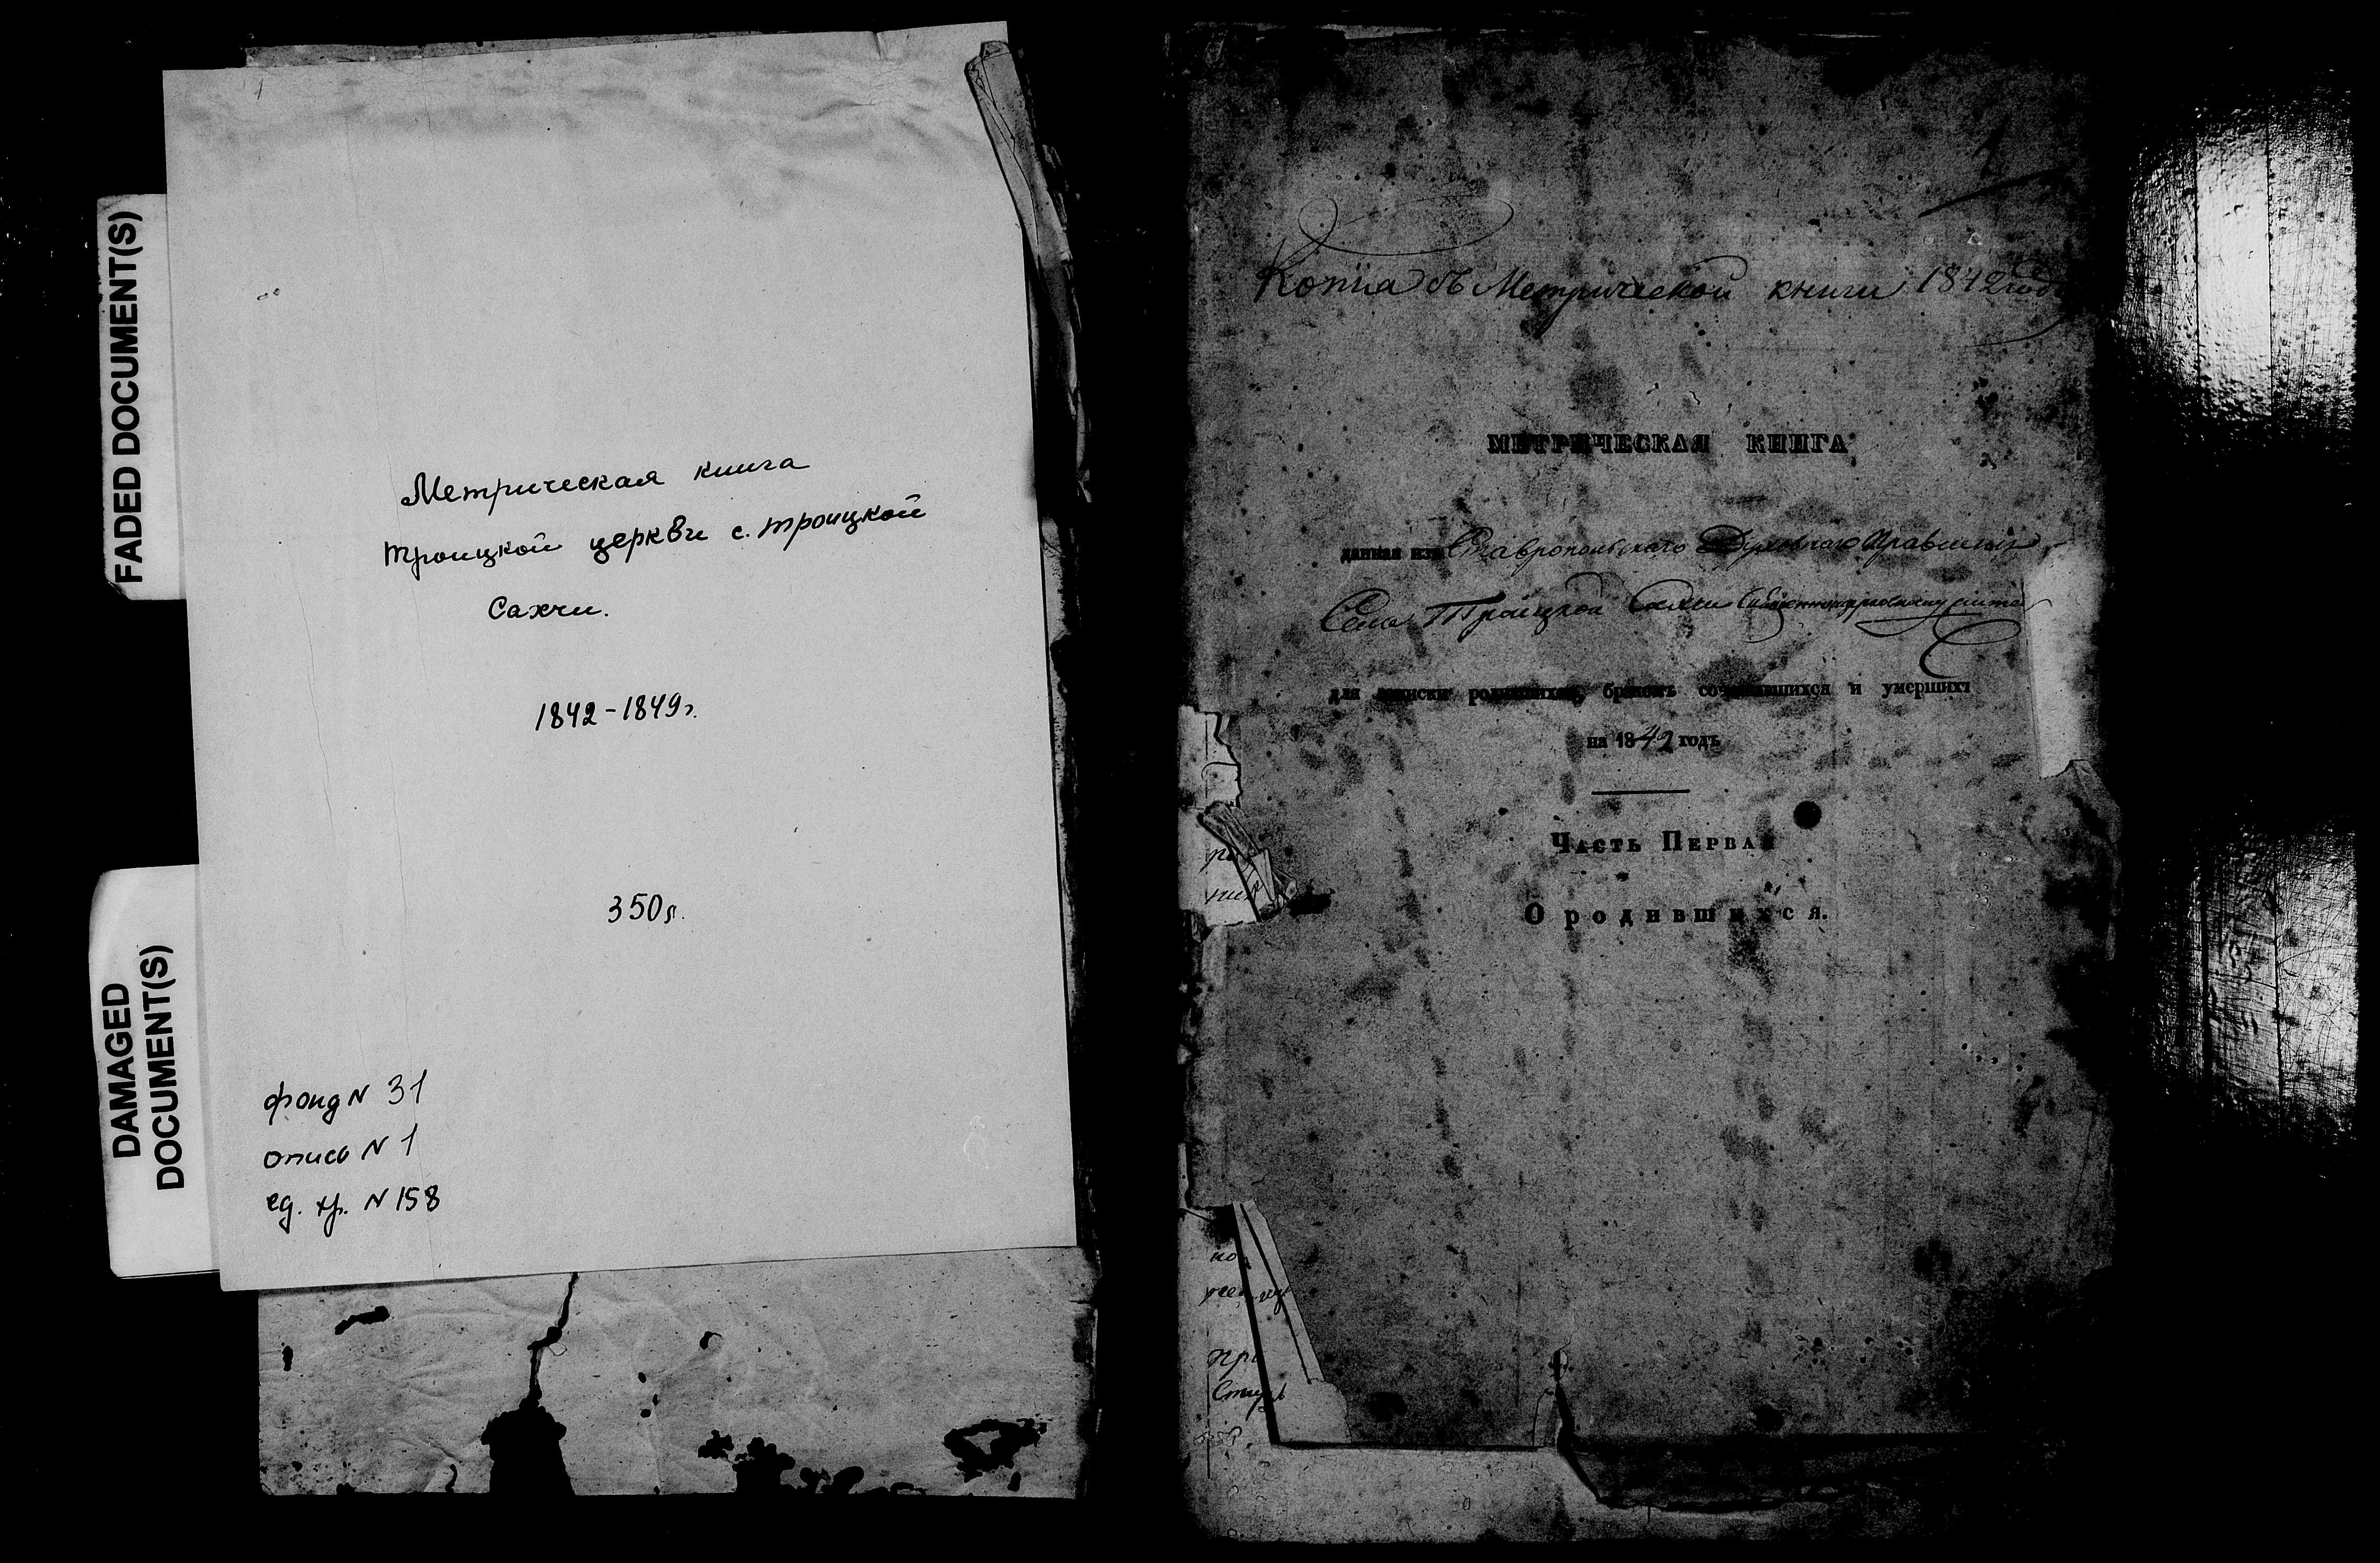 FADED DOCUMENT(S)
DAMAGED
DOCUMENT(S)
1
Метрическая книга
троицкой церкви с. троицкой
Сахчи.
1842-1849г.
350л.
фонд N 31
опись N 1
ед. хр. N 158
1
Копiя съ Метрической книги 1842 года
МЕТРИЧЕСКАЯ КНИГА
данная изъ Ставропольскаго Духовнаго Правленiя
Села Троицкой Сахчи
для записки родившихся, бракомъ сочетавшихся и умершихъ
на 1842 годъ
Часть Первая
О родившихся.